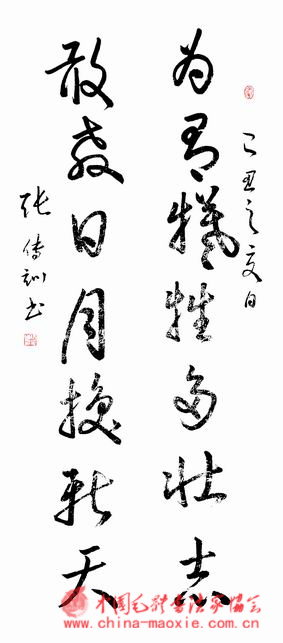 己丑之夏日
为有犧牲多壮志
敢教日月换新天
张传训书
中国毛体书法家协会
www.china-maoxie.com.cn